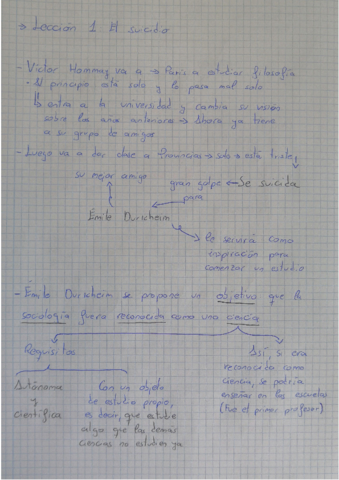 → Lección 1 El suicidio
- Victor Hommay va a → París a estudiar filosofía
· Al principio está solo y lo pasa mal solo
↳ entra a la universidad y cambia su visión
sobre los años anteriores → Ahora ya tiene
a su grupo de amigos
- Luego va a dar clase a Provincias → solo → está triste
su mejor amigo gran golpe ← Se suicida
para
Émile Durkheim
le servirá como
inspiración para
comenzar un estudio
- Émile Durkheim se propone un objetivo que la
sociología fuera reconocida como una ciencia
Requisitos
Autónoma
y
científica
Con un objeto
de estudio propio,
es decir, que estudie
algo que las demás
ciencias no estudien ya
Así, si era
reconocida como
ciencia, se podría
enseñar en las escuelas
(Fue el primer profesor)